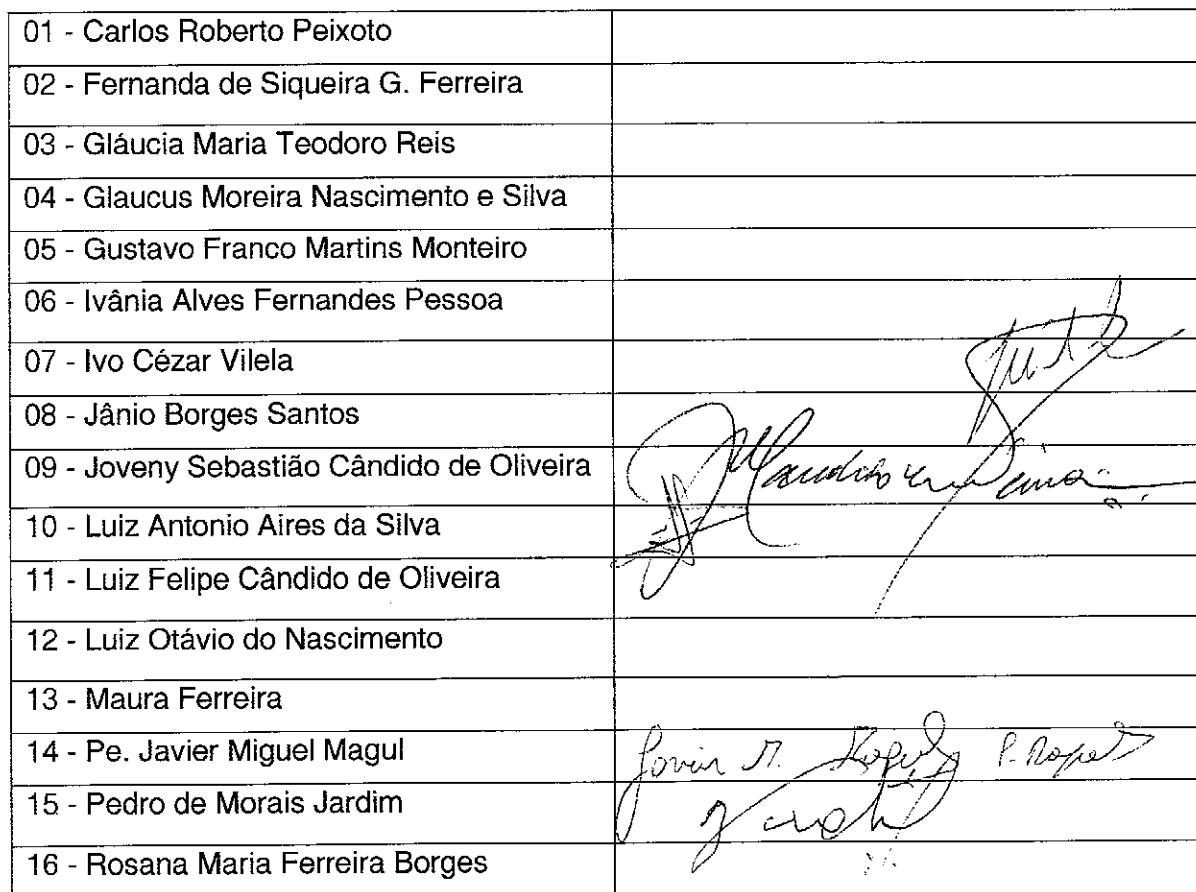 01 - Carlos Roberto Peixoto
02 - Fernanda de Siqueira G. Ferreira
03 - Gláucia Maria Teodoro Reis
04 - Glaucus Moreira Nascimento e Silva
05 - Gustavo Franco Martins Monteiro
06 - Ivânia Alves Fernandes Pessoa
07 - Ivo Cézar Vilela
08 - Jânio Borges Santos
09 - Joveny Sebastião Cândido de Oliveira
10 - Luiz Antonio Aires da Silva
11 - Luiz Felipe Cândido de Oliveira
12 - Luiz Otávio do Nascimento
13 - Maura Ferreira
14 - Pe. Javier Miguel Magul
15 - Pedro de Morais Jardim
16 - Rosana Maria Ferreira Borges